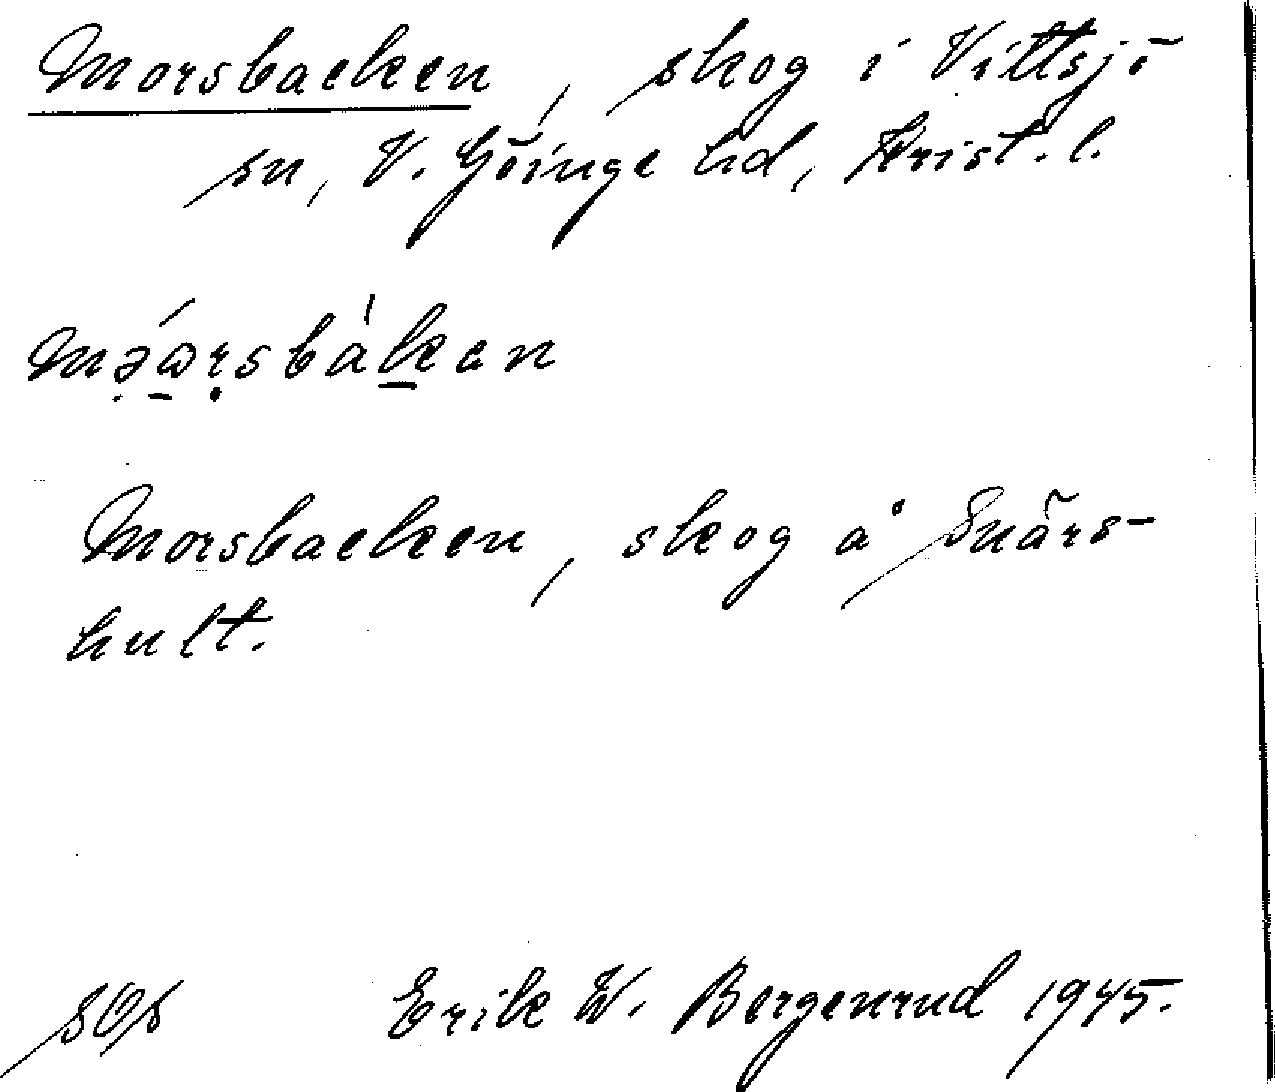 Morsbacken, skog i Vittsjö
sn, V. Göinge hd, Krist. l.
Morsbacken, skog å Snärs-
hult.
Erik W. Bergenrud 1945.